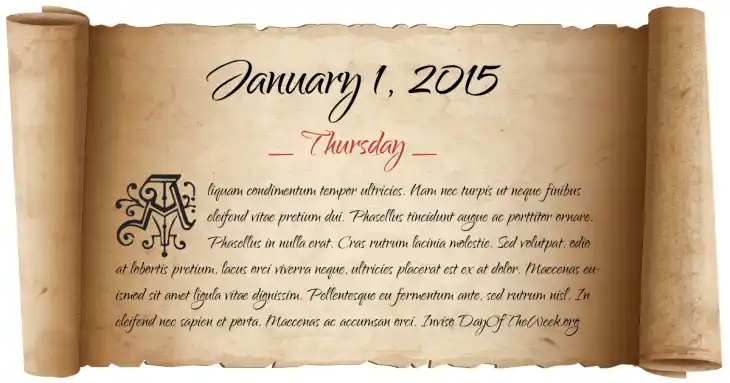 January 1, 2015
__ Thursday __
Aliquam condimentum tempor ultricies. Nam nec turpis ut neque finibus
eleifend vitae pretium dui. Phasellus tincidunt augue ac porttitor ornare.
Phasellus in nulla erat. Cras rutrum lacinia molestie. Sed volutpat, odio
at lobortis pretium, lacus orci viverra neque, ultricies placerat est ex at dolor. Maecenas eu-
ismod sit amet ligula vitae dignissim. Pellentesque eu fermentum ante, sed rutrum nisl. In
eleifend nec sapien et porta. Maecenas ac accumsan orci. Inviso DayOfTheWeek.org